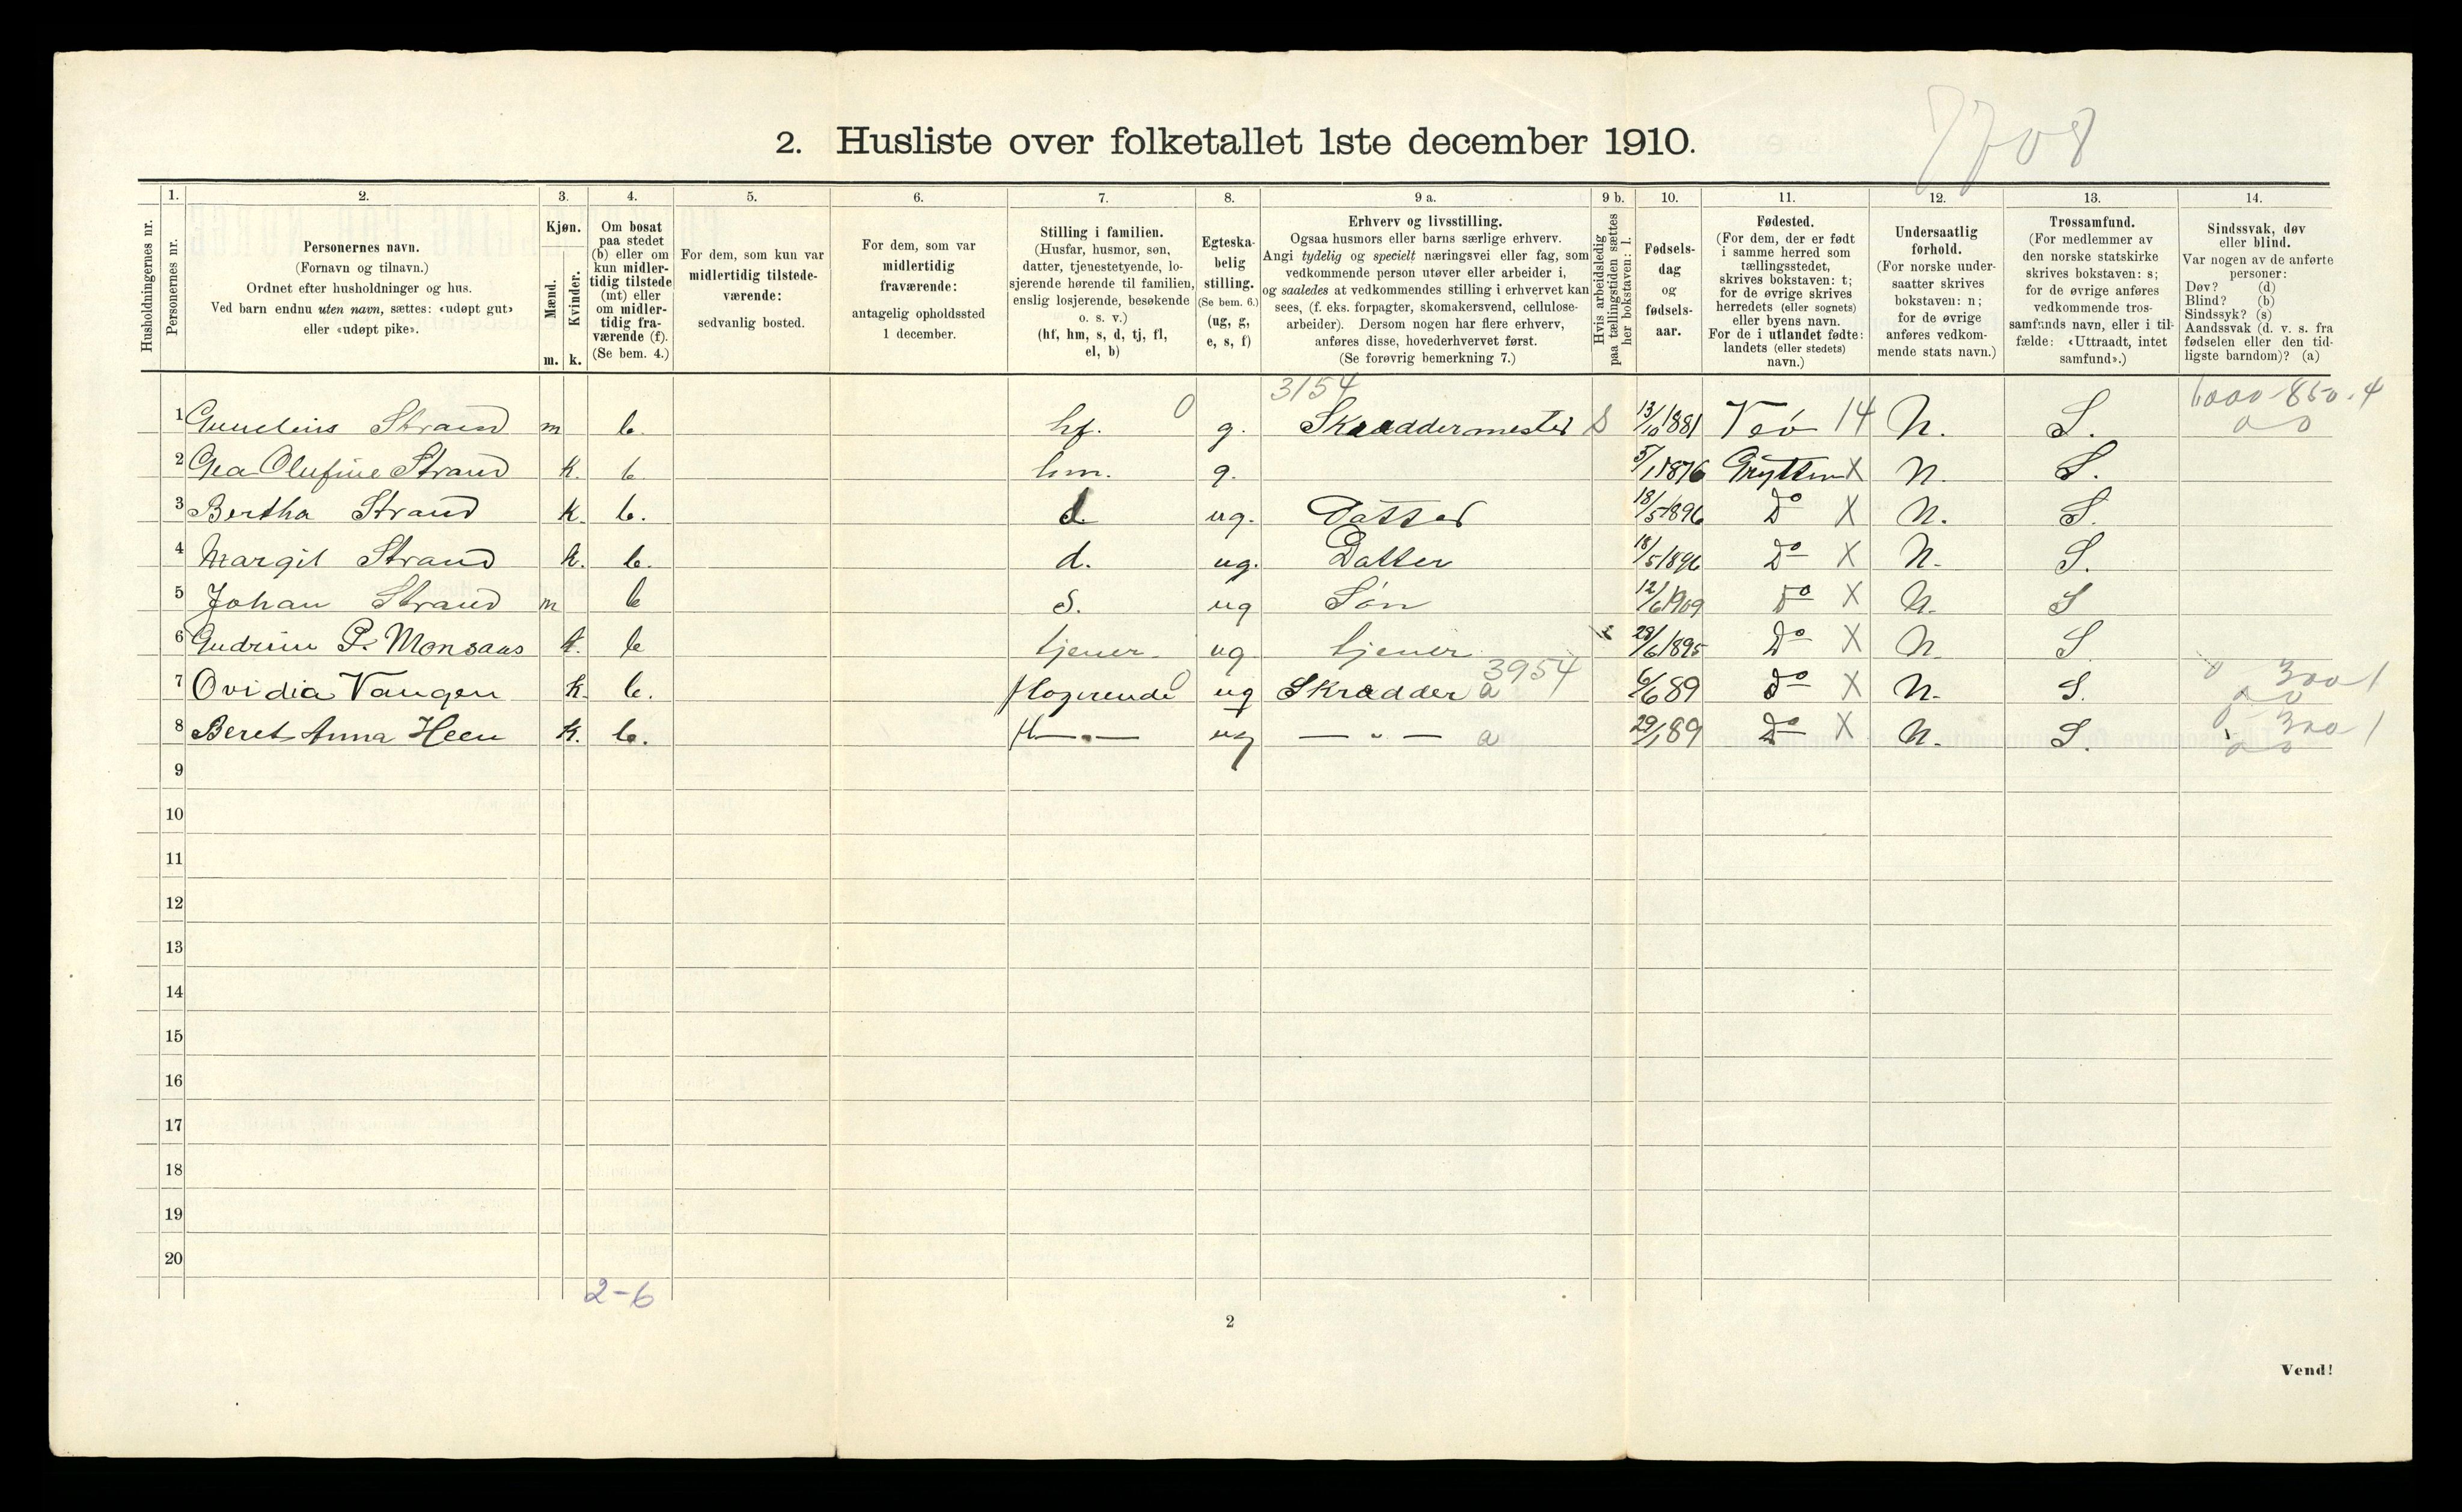 7708
2. Husliste over folketallet 1ste december 1910.
1. 2. 3. 4. 5. 6. 7. 8. 9 a. 9 b. 10. 11. 12. 13. 14.
Husholdningernes nr.
Personernes nr.
Personernes navn.
(Fornavn og tilnavn.)
Ordnet efter husholdninger og hus.
Ved barn endnu uten navn, sættes: «udøpt gut»
eller «udøpt pike».
Kjøn.
Mænd.
Kvinder.
m. k.
Om bosat
paa stedet
(b) eller om
kun midler-
tidig tilstede
(mt) eller
om midler-
tidig fra-
værende (f).
(Se bem. 4.)
For dem, som kun var
midlertidig tilstede-
værende:
sedvanlig bosted.
For dem, som var
midlertidig
fraværende:
antagelig opholdssted
1 december.
Stilling i familien.
(Husfar, husmor, søn,
datter, tjenestetyende, lo-
sjerende hørende til familien,
enslig losjerende, besøkende
o. s. v.)
(hf, hm, s, d, tj, fl,
el, b)
Egteska-
belig
stilling.
(Se bem. 6.)
(ug, g,
e, s, f)
Erhverv og livsstilling.
Ogsaa husmors eller barns særlige erhverv.
Angi tydelig og specielt næringsvei eller fag, som
vedkommende person utøver eller arbeider i,
og saaledes at vedkommendes stilling i erhvervet kan
sees, (f. eks. forpagter, skomakersvend, cellulose-
arbeider). Dersom nogen har flere erhverv,
anføres disse, hovederhvervet først.
(Se forøvrig bemerkning 7.)
Hvis arbeidsledig
paa tællingstiden sættes
her bokstaven: l.
Fødsels-
dag
og
fødsels-
aar.
Fødested.
(For dem, der er født
i samme herred som
tællingsstedet,
skrives bokstaven: t;
for de øvrige skrives
herredets (eller sognets)
eller byens navn.
For de i utlandet fødte:
landets (eller stedets)
navn.)
Undersaatlig
forhold.
(For norske under-
saatter skrives
bokstaven: n;
for de øvrige
anføres vedkom-
mende stats navn.)
Trossamfund.
(For medlemmer av
den norske statskirke
skrives bokstaven: s;
for de øvrige anføres
vedkommende tros-
samfunds navn, eller i til-
fælde: «Uttraadt, intet
samfund».)
Sindssvak, døv
eller blind.
Var nogen av de anførte
personer:
Døv? (d)
Blind? (b)
Sindssyk? (s)
Aandssvak (d. v. s. fra
fødselen eller den tid-
ligste barndom)? (a)
3154
1 Strand m b. hf. 0 g. Skraddermester S 13/10 1881 Veö 14 N. S. 1000-850.4
2 Gea Olufine Strand k. b. hm. g. 5/1 1876 Grytten X N. S.
3 Bertha Strand k. b. d. ug. Datter 18/5 1896 Do X N. S.
4 Margit Strand k. b. d. ug. Datter 18/5 1896 Do X N. S.
5 Johan Strand m b s. ug Søn 12/6 1909 Do X N. S
6 Gudrun P. Monsaas k. b tjener ug tjener 28/6 1895 Do X N. S
3954
7 Ovidia Vangen k. b. flogerende 0 ug Skradder a 6/6 89 do X N. S. 300 1
8 Beret Anna Heen k. b. fl—„— ug — „ — a 29/1 89 Do X N. S. 300 1
9
10
11
12
13
14
15
16
17
18
19
20
2-6
2
Vend!